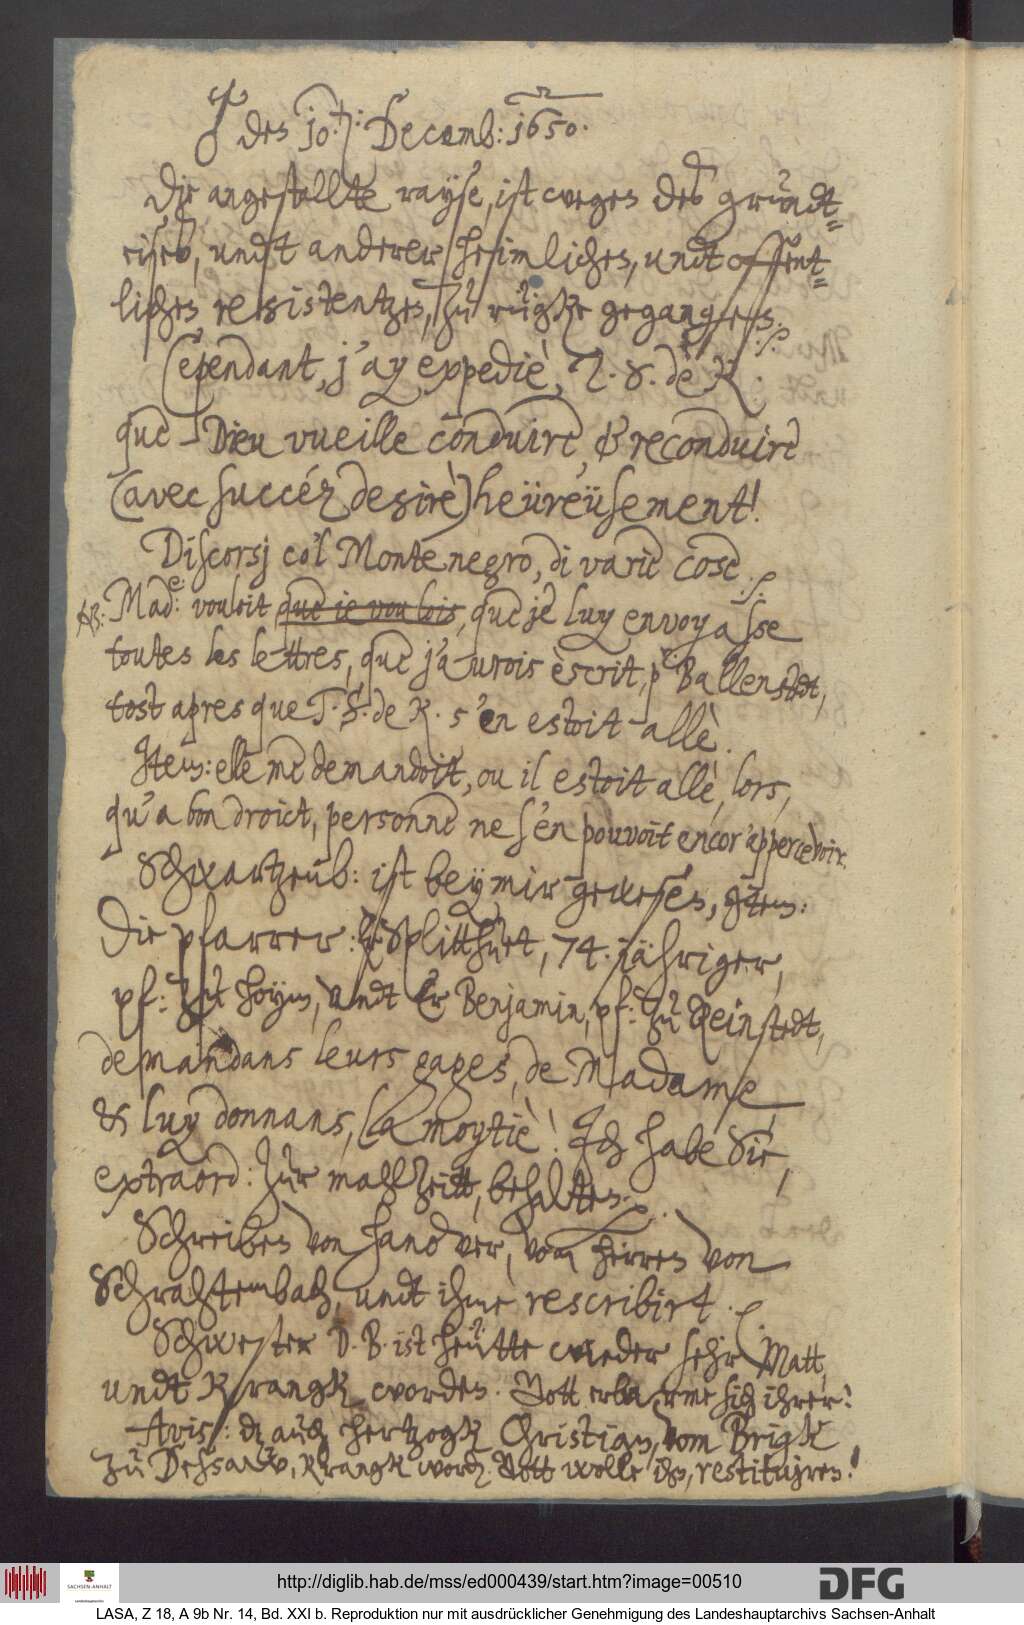 ♂ den 10.: Decemb: 1650.
Die angestellte rayse, ist wegen deß grundt-
eises, undt anderer heimlichen, undt offent-
lichen resistentzen, zu rügke gegangen.
Cependant, j'ay expediè, T. S. de R.
que Dieu vueille conduire, & reconduire
(avec succéz desirè) heüreüsement!
Discorsj co'l Montenegro, di varie cose.
NB: Mad:e vouloit, que je vou lois, que je luy envoyasse
toutes les lettres, que j'aurois èscrit, p Ballenstedt,
tost apres que T. S. de R. s'en estoit allè.
Item: elle me demandoit, ou il estoit allè, lors,
qu'a bon droict, personne ne s'en pouvoit encor' appercevoir.
Schwartzenb: ist bey mir gewesen, Item:
Die pfarrer: Er Splitthuet, 74. jähriger,
pf: zu Hoym, undt Er Benjamin, pf: zu Reinstedt,
demandans leurs gages, de Madame
& luy donnans, la moytiè! Ich habe Sie,
extraord: zur mahlzeitt, behalten.
Schreiben von Hanover, vom herren von
Schrahtembach, undt ihme rescribirt.
Schwester D. B. ist heütte wieder sehr Matt,
undt Krangk worden. Gott erbarme sich ihrer!
Avis: dz auch hertzogk Christian, vom Brigk
zu Deßaw, krangk word. Gott wolle ihn, restituiren!
http://diglib.hab.de/mss/ed000439/start.htm?image=00510
SACHSEN-ANHALT
DFG
LASA, Z 18, A 9b Nr. 14, Bd. XXI b. Reproduktion nur mit ausdrücklicher Genehmigung des Landeshauptarchivs Sachsen-Anhalt